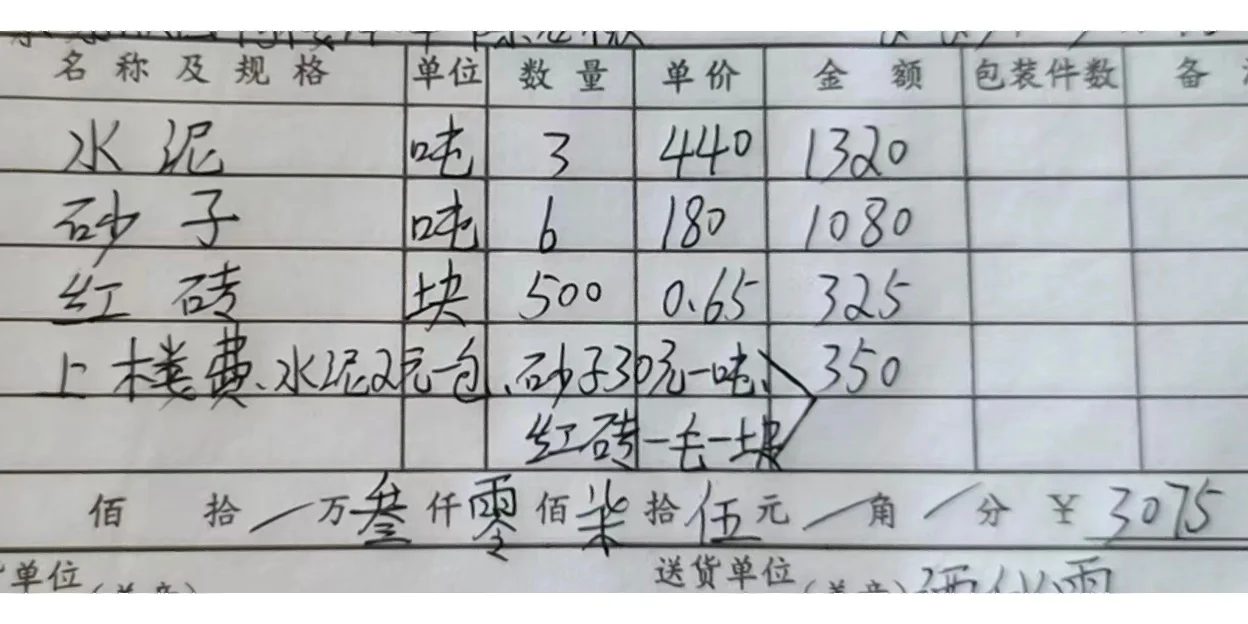 名称及规格 单位 数量 单价 金额 包装件数 备
水泥 吨 3 440 1320
砂子 吨 6 180 1080
红砖 块 500 0.65 325
上楼费、水泥2元一包、砂子30元一吨、 350
红砖一毛一块
佰 拾 / 万 叁 仟 零 佰 柒 拾 伍 元 / 角 / 分 ¥ 3075
单位 送货单位